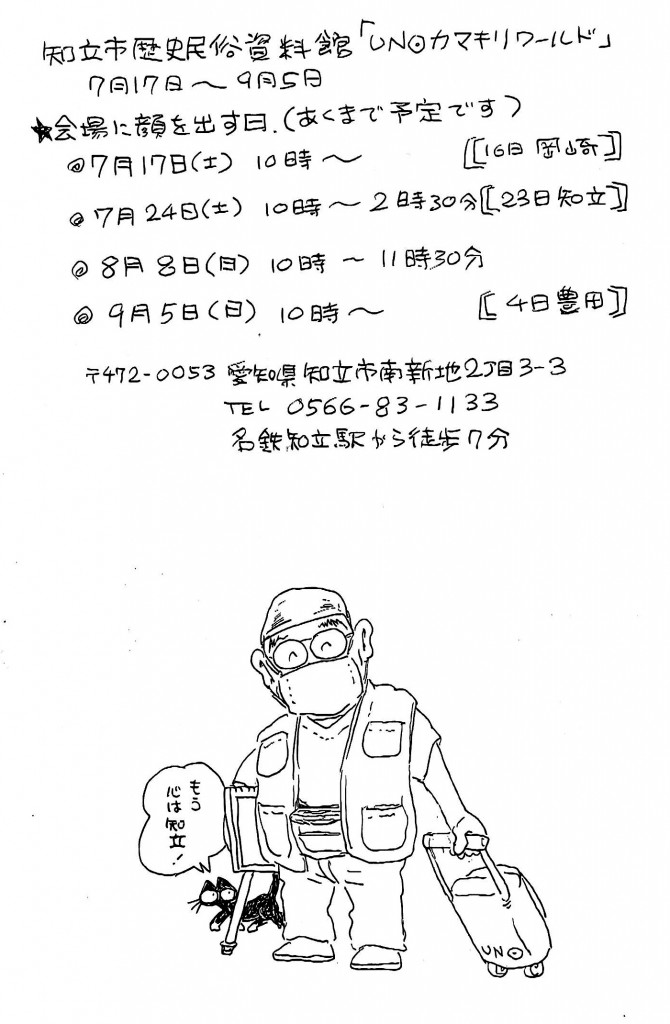 知立市歴史民俗資料館「UNOカマキリワールド」
7月17日～9月5日
★会場に顔を出す日.(あくまで予定です)
◎7月17日(土) 10時～ [[16日 岡崎]]
◎7月24日(土) 10時～2時30分[[23日知立]]
◎8月8日(日) 10時～11時30分
◎9月5日(日) 10時～ [[4日豊田]]
〒472-0053 愛知県知立市南新地2丁目3-3
TEL 0566-83-1133
名鉄知立駅から徒歩7分
もう
心は知立!
UNO